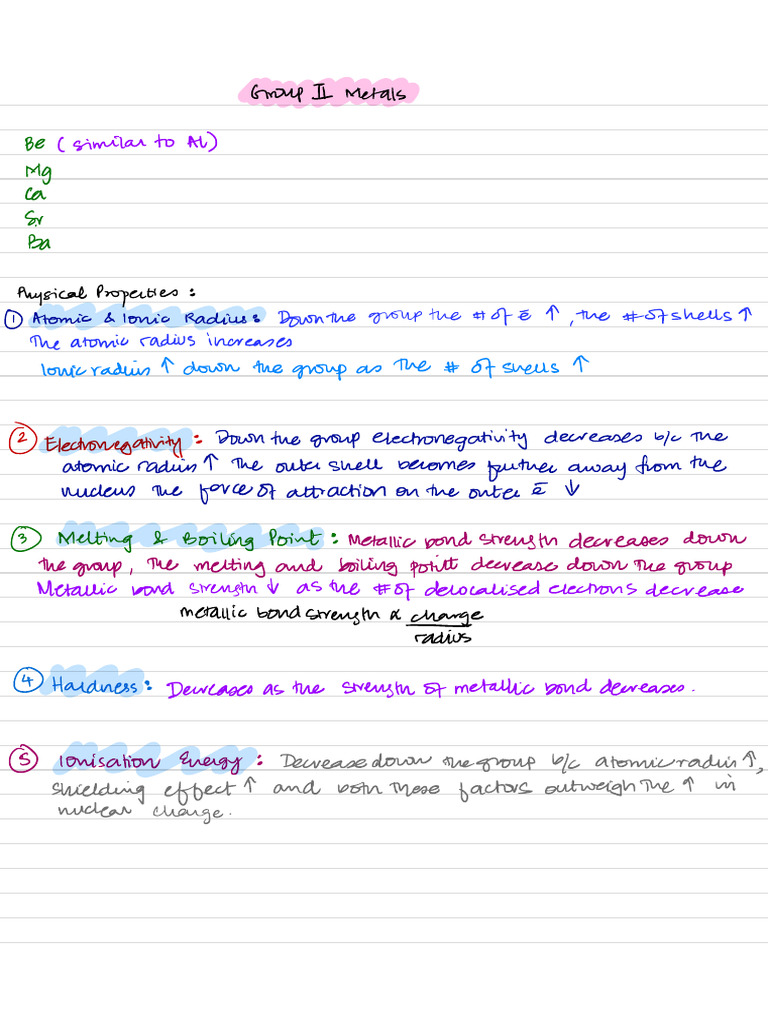 Group II Metals
Be (similar to Al)
Mg
Ca
Sr
Ba
Physical Properties:
① Atomic & Ionic Radius: Down the group the # of ē ↑, the # of shells ↑
The atomic radius increases
Ionic radius ↑ down the group as the # of shells ↑
② Electronegativity: Down the group electronegativity decreases b/c the
atomic radius ↑ The outer shell becomes further away from the
nucleus the force of attraction on the outer ē ↓
③ Melting & Boiling Point: Metallic bond strength decreases down
the group, the melting and boiling point decrease down the group
Metallic bond strength ↓ as the # of delocalised electrons decrease
metallic bond strength ∝ charge
radius
④ Hardness: Decreases as the strength of metallic bond decreases.
⑤ Ionisation Energy: Decrease down the group b/c atomic radius ↑,
shielding effect ↑ and both these factors outweigh the ↑ in
nuclear charge.